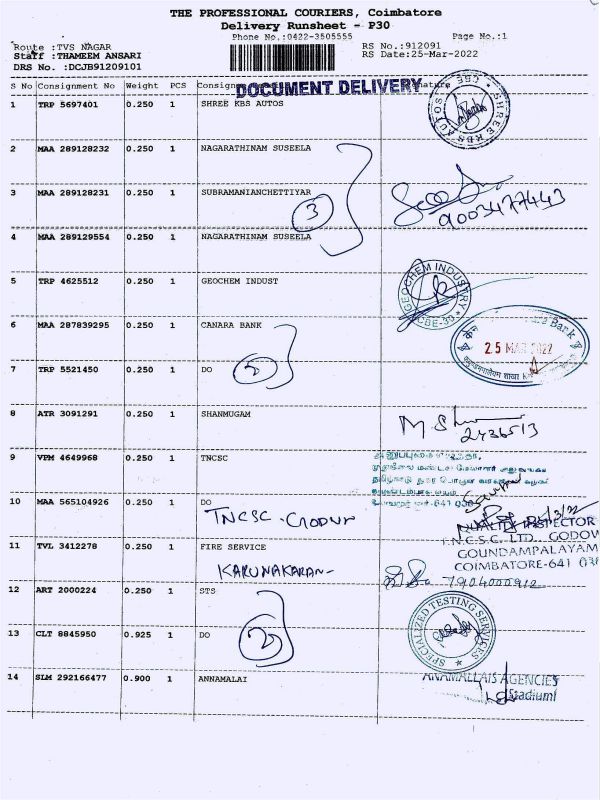 THE PROFESSIONAL COURIERS, Coimbatore
Delivery Runsheet - P30
Phone No.:0422-3505555
Page No.:1
Route :TVS NAGAR
RS No.:912091
Staff :THAMEEM ANSARI
RS Date:25-Mar-2022
DRS No. :DCJB91209101
S No Consignment No Weight PCS Consignee
DOCUMENT DELIVERY
1 TRP 5697401 0.250 1 SHREE KBS AUTOS
SHREE KBS AUTOS CBE
2 MAA 289128232 0.250 1 NAGARATHINAM SUSEELA
3 MAA 289128231 0.250 1 SUBRAMANIANCHETTIYAR
3
9003477443
4 MAA 289129554 0.250 1 NAGARATHINAM SUSEELA
5 TRP 4625512 0.250 1 GEOCHEM INDUST
GEOCHEM INDUSTRY CBE-30
6 MAA 287839295 0.250 1 CANARA BANK
Bank
25 MAR 2022
7 TRP 5521450 0.250 1 DO
8 ATR 3091291 0.250 1 SHANMUGAM
2436513
9 VPM 4649968 0.250 1 TNCSC
10 MAA 565104926 0.250 1 DO
TNCSC
QUALITY INSPECTOR
T.N.C.S.C. LTD., GODOW
GOUNDAMPALAYAM
COIMBATORE-641 030
11 TVL 3412278 0.250 1 FIRE SERVICE
KARUNAKARAN
7904000912
12 ART 2000224 0.250 1 STS
SPECIALIZED TESTING SERVICES
13 CLT 8845950 0.925 1 DO
2
14 SLM 292166477 0.900 1 ANNAMALAI
ANAMALLAIS AGENCIES
(Stadium)